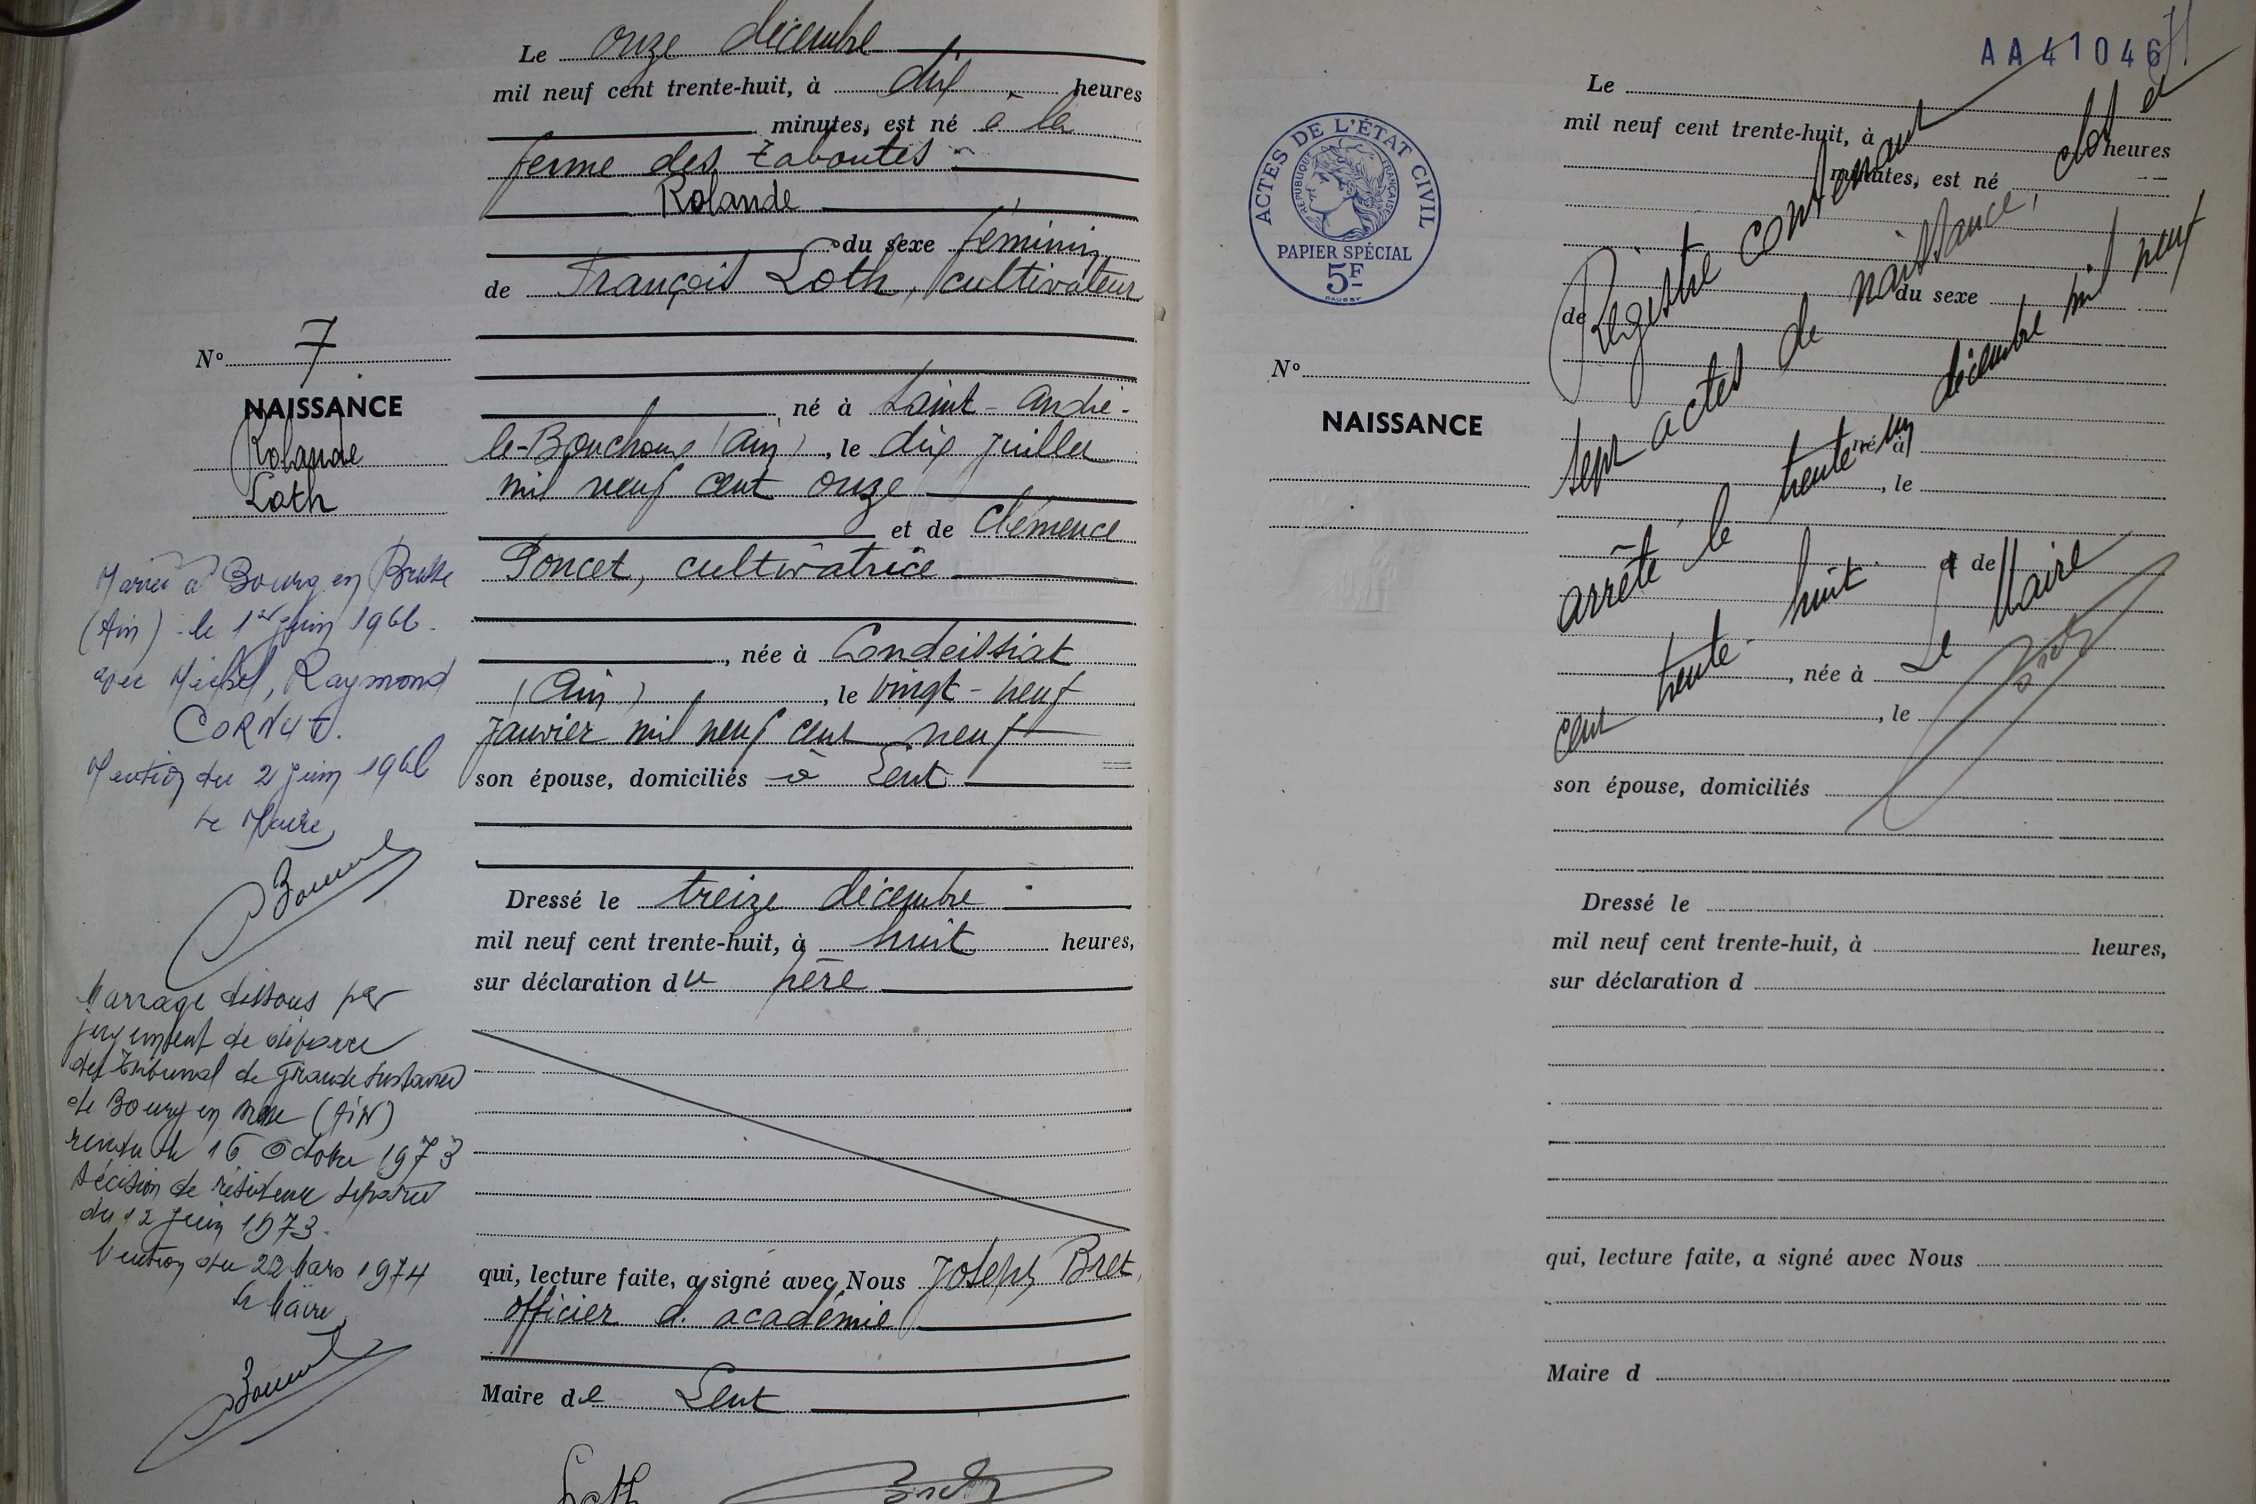 Le onze décembre
mil neuf cent trente-huit, à dix heures
minutes, est né à la
ferme des
Rolande
du sexe féminin
de François Loth, cultivateur
né à Saint-André-
le-Bouchoux (Ain), le dix juillet
mil neuf cent onze
et de Clémence
Poncet, cultivatrice
, née à Condeissiat
(Ain), le vingt-neuf
janvier mil neuf cent neuf
son épouse, domiciliés à Lent
Dressé le treize décembre
mil neuf cent trente-huit, à huit heures,
sur déclaration du père
qui, lecture faite, a signé avec Nous Joseph Bret,
officier d'académie
Maire de Lent
Loth
Nº 7
NAISSANCE
Rolande
Loth
Mariée à Bourg en Bresse
(Ain) le 1er juin 1966.
avec Michel, Raymond
CORNUT.
Mention du 2 juin 1966
Le Maire
Mariage dissous par
jugement de divorce
du tribunal de Grande Instance
de Bourg en Bresse (AiN)
rendu le 16 Octobre 1973
décision de résidence séparée
du 12 juin 1973.
Mention du 22 Mars 1974
Le Maire
AA41046
ACTES DE L'ÉTAT CIVIL
RÉPUBLIQUE FRANÇAISE
PAPIER SPÉCIAL
5F
Nº
NAISSANCE
Le
mil neuf cent trente-huit, à heures
minutes, est né
du sexe
de
né à
, le
et de
, née à
, le
son épouse, domiciliés
Dressé le
mil neuf cent trente-huit, à heures,
sur déclaration d
qui, lecture faite, a signé avec Nous
Maire d
Registre contenant
sept actes de naissance, clos et
arrêté le trente un décembre mil neuf
cent trente-huit
Le Maire